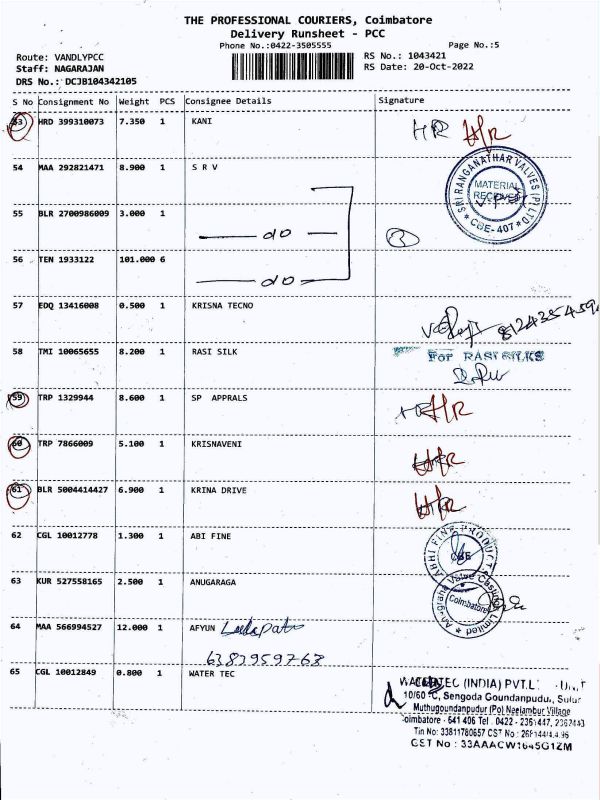 THE PROFESSIONAL COURIERS, Coimbatore
Delivery Runsheet - PCC
Phone No.:0422-3505555
Page No.:5
Route: VANDLYPCC
RS No.: 1043421
Staff: NAGARAJAN
RS Date: 20-Oct-2022
DRS No.: DCJB104342105
S No Consignment No Weight PCS Consignee Details Signature
53 HRD 399310073 7.350 1 KANI HR HR
54 MAA 292821471 8.900 1 S R V
SRI RANGANATHAR VALVES (P) LTD
MATERIAL RECEIVED
* CBE-407 *
55 BLR 2700986009 3.000 1
do
2
56 TEN 1933122 101.000 6
do
57 EDQ 13416008 0.500 1 KRISNA TECNO
58 TMI 10065655 8.200 1 RASI SILK
For RASI SILKS
59 TRP 1329944 8.600 1 SP APPRALS HR HR
60 TRP 7866009 5.100 1 KRISNAVENI HR
61 BLR 5004414427 6.900 1 KRINA DRIVE HR
62 CGL 10012778 1.300 1 ABI FINE
ABHI FINE PRODUCT
CBE
63 KUR 527558165 2.500 1 ANUGARAGA
Anugraha Valve Castings Limited
Coimbatore
64 MAA 566994527 12.000 1 AFYUN
6382959768
65 CGL 10012849 0.800 1 WATER TEC
(INDIA) PVT.L
10/60 C, Sengoda Goundanpudur, Sulur
Muthugoundanpudur (Po) Neelambur Village
oimbatore - 641 406 Tel . 0422 - 2361447, 2367443
Tin No: 33811780657 CST No :
CST No : 33AAACW1645G1ZM